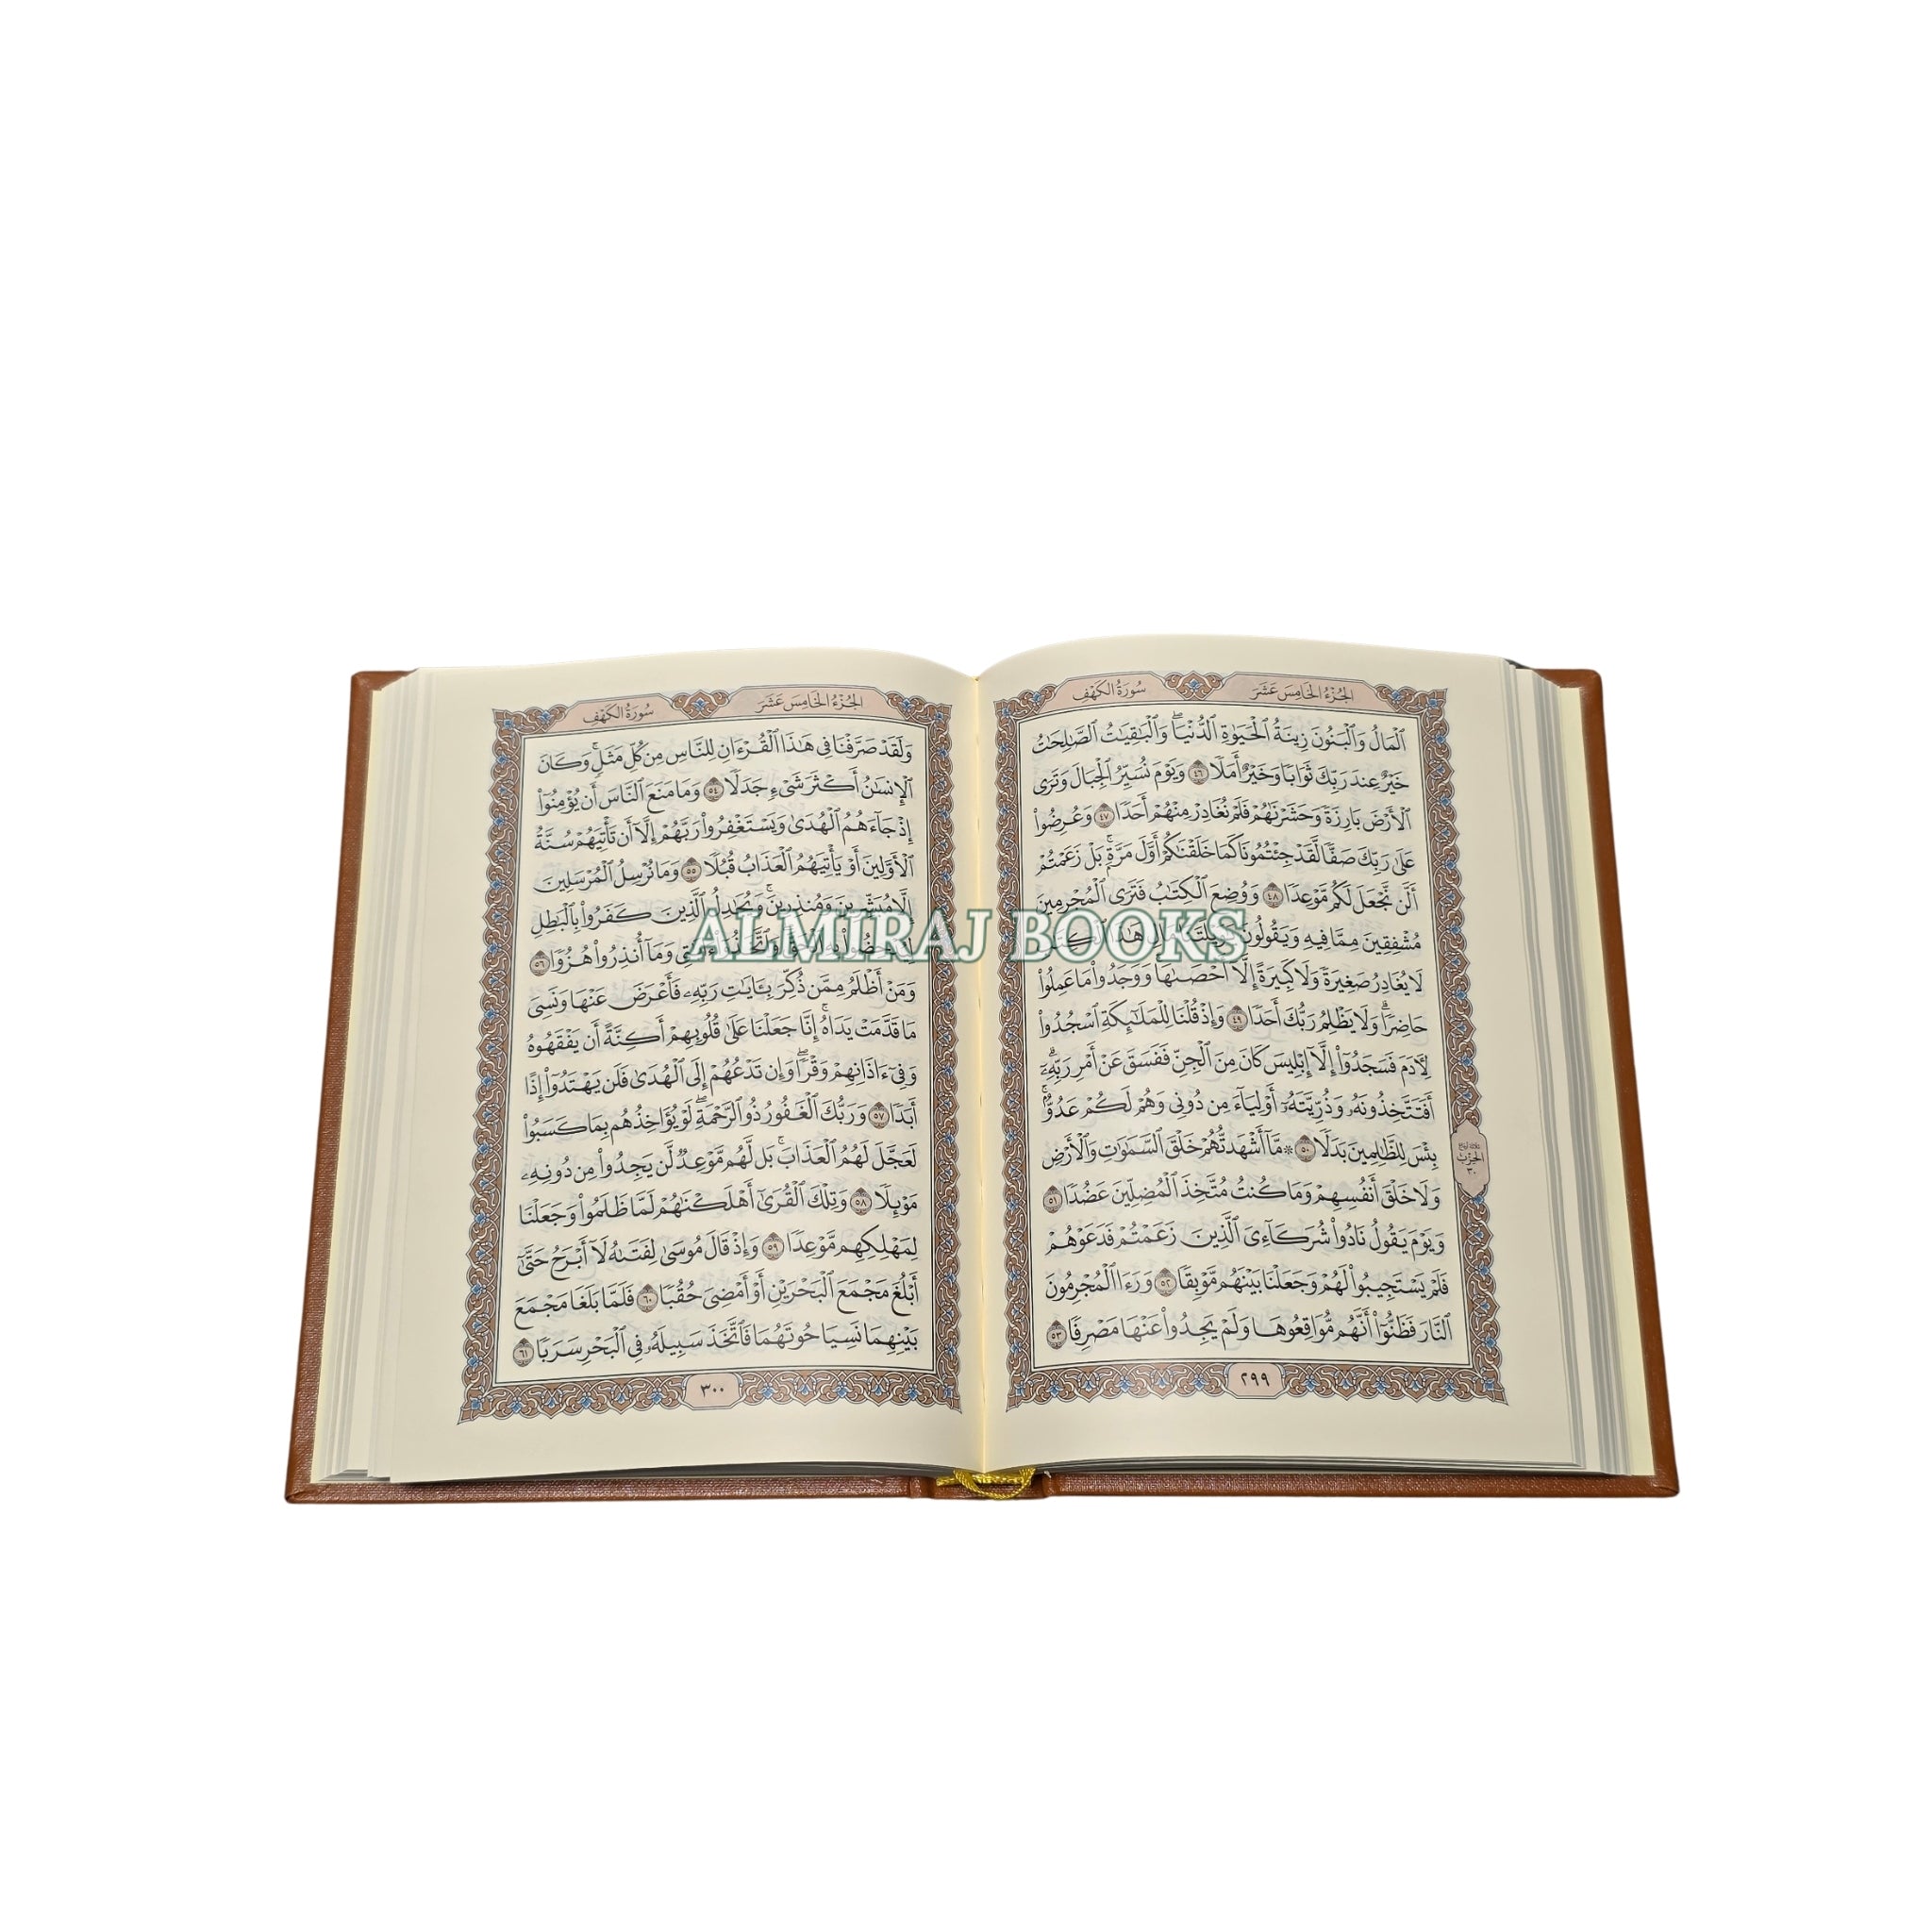 الجُزْءُ الخَامِسَ عَشَرَ
سُورَةُ الكَهْفِ
ٱلْمَالُ وَٱلْبَنُونَ زِينَةُ ٱلْحَيَوٰةِ ٱلدُّنْيَاۖ وَٱلْبَٰقِيَٰتُ ٱلصَّٰلِحَٰتُ
خَيْرٌ عِندَ رَبِّكَ ثَوَابًا وَخَيْرٌ أَمَلًا ٤٦ وَيَوْمَ نُسَيِّرُ ٱلْجِبَالَ وَتَرَى
ٱلْأَرْضَ بَارِزَةً وَحَشَرْنَٰهُمْ فَلَمْ نُغَادِرْ مِنْهُمْ أَحَدًا ٤٧ وَعُرِضُوا۟
عَلَىٰ رَبِّكَ صَفًّا لَّقَدْ جِئْتُمُونَا كَمَا خَلَقْنَٰكُمْ أَوَّلَ مَرَّةٍۭۚ بَلْ زَعَمْتُمْ
أَلَّن نَّجْعَلَ لَكُم مَّوْعِدًا ٤٨ وَوُضِعَ ٱلْكِتَٰبُ فَتَرَى ٱلْمُجْرِمِينَ
مُشْفِقِينَ مِمَّا فِيهِ وَيَقُولُونَ يَٰوَيْلَتَنَا مَالِ هَٰذَا ٱلْكِتَٰبِ
لَا يُغَادِرُ صَغِيرَةً وَلَا كَبِيرَةً إِلَّآ أَحْصَىٰهَاۚ وَوَجَدُوا۟ مَا عَمِلُوا۟
حَاضِرًاۗ وَلَا يَظْلِمُ رَبُّكَ أَحَدًا ٤٩ وَإِذْ قُلْنَا لِلْمَلَٰٓئِكَةِ ٱسْجُدُوا۟
لِءَادَمَ فَسَجَدُوٓا۟ إِلَّآ إِبْلِيسَ كَانَ مِنَ ٱلْجِنِّ فَفَسَقَ عَنْ أَمْرِ رَبِّهِۦٓۗ
أَفَتَتَّخِذُونَهُۥ وَذُرِّيَّتَهُۥٓ أَوْلِيَآءَ مِن دُونِى وَهُمْ لَكُمْ عَدُوٌّۢۚ
بِئْسَ لِلظَّٰلِمِينَ بَدَلًا ٥٠ ۞ مَّآ أَشْهَدتُّهُمْ خَلْقَ ٱلسَّمَٰوَٰتِ وَٱلْأَرْضِ
وَلَا خَلْقَ أَنفُسِهِمْ وَمَا كُنتُ مُتَّخِذَ ٱلْمُضِلِّينَ عَضُدًا ٥١
وَيَوْمَ يَقُولُ نَادُوا۟ شُرَكَآءِىَ ٱلَّذِينَ زَعَمْتُمْ فَدَعَوْهُمْ
فَلَمْ يَسْتَجِيبُوا۟ لَهُمْ وَجَعَلْنَا بَيْنَهُم مَّوْبِقًا ٥٢ وَرَءَا ٱلْمُجْرِمُونَ
ٱلنَّارَ فَظَنُّوٓا۟ أَنَّهُم مُّوَاقِعُوهَا وَلَمْ يَجِدُوا۟ عَنْهَا مَصْرِفًا ٥٣
ثلاثة أرباع
الحزب
٣٠
٢٩٩
الجُزْءُ الخَامِسَ عَشَرَ
سُورَةُ الكَهْفِ
وَلَقَدْ صَرَّفْنَا فِى هَٰذَا ٱلْقُرْءَانِ لِلنَّاسِ مِن كُلِّ مَثَلٍۚ وَكَانَ
ٱلْإِنسَٰنُ أَكْثَرَ شَىْءٍ جَدَلًا ٥٤ وَمَا مَنَعَ ٱلنَّاسَ أَن يُؤْمِنُوٓا۟
إِذْ جَآءَهُمُ ٱلْهُدَىٰ وَيَسْتَغْفِرُوا۟ رَبَّهُمْ إِلَّآ أَن تَأْتِيَهُمْ سُنَّةُ
ٱلْأَوَّلِينَ أَوْ يَأْتِيَهُمُ ٱلْعَذَابُ قُبُلًا ٥٥ وَمَا نُرْسِلُ ٱلْمُرْسَلِينَ
إِلَّا مُبَشِّرِينَ وَمُنذِرِينَۚ وَيُجَٰدِلُ ٱلَّذِينَ كَفَرُوا۟ بِٱلْبَٰطِلِ
لِيُدْحِضُوا۟ بِهِ ٱلْحَقَّۖ وَٱتَّخَذُوٓا۟ ءَايَٰتِى وَمَآ أُنذِرُوا۟ هُزُوًا ٥٦
وَمَنْ أَظْلَمُ مِمَّن ذُكِّرَ بِـَٔايَٰتِ رَبِّهِۦ فَأَعْرَضَ عَنْهَا وَنَسِىَ
مَا قَدَّمَتْ يَدَاهُۚ إِنَّا جَعَلْنَا عَلَىٰ قُلُوبِهِمْ أَكِنَّةً أَن يَفْقَهُوهُ
وَفِىٓ ءَاذَانِهِمْ وَقْرًاۖ وَإِن تَدْعُهُمْ إِلَى ٱلْهُدَىٰ فَلَن يَهْتَدُوٓا۟ إِذًا
أَبَدًا ٥٧ وَرَبُّكَ ٱلْغَفُورُ ذُو ٱلرَّحْمَةِۖ لَوْ يُؤَاخِذُهُم بِمَا كَسَبُوا۟
لَعَجَّلَ لَهُمُ ٱلْعَذَابَۚ بَل لَّهُم مَّوْعِدٌ لَّن يَجِدُوا۟ مِن دُونِهِۦ
مَوْئِلًا ٥٨ وَتِلْكَ ٱلْقُرَىٰٓ أَهْلَكْنَٰهُمْ لَمَّا ظَلَمُوا۟ وَجَعَلْنَا
لِمَهْلِكِهِم مَّوْعِدًا ٥٩ وَإِذْ قَالَ مُوسَىٰ لِفَتَىٰهُ لَآ أَبْرَحُ حَتَّىٰٓ
أَبْلُغَ مَجْمَعَ ٱلْبَحْرَيْنِ أَوْ أَمْضِىَ حُقُبًا ٦٠ فَلَمَّا بَلَغَا مَجْمَعَ
بَيْنِهِمَا نَسِيَا حُوتَهُمَا فَٱتَّخَذَ سَبِيلَهُۥ فِى ٱلْبَحْرِ سَرَبًا ٦١
٣٠٠
ALMIRAJ BOOKS